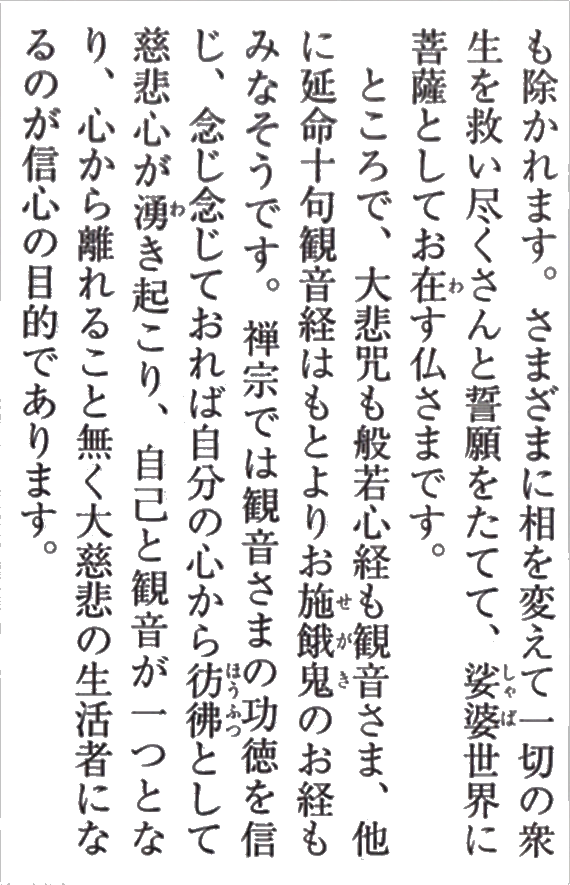 も除かれます。さまざまに相を変えて一切の衆
生を救い尽くさんと誓願をたてて、娑婆世界に
菩薩としてお在す仏さまです。
ところで、大悲咒も般若心経も観音さま、他
に延命十句観音経はもとよりお施餓鬼のお経も
みなそうです。禅宗では観音さまの功徳を信
じ、念じ念じておれば自分の心から彷彿として
慈悲心が湧き起こり、自己と観音が一つとな
り、心から離れること無く大慈悲の生活者にな
るのが信心の目的であります。